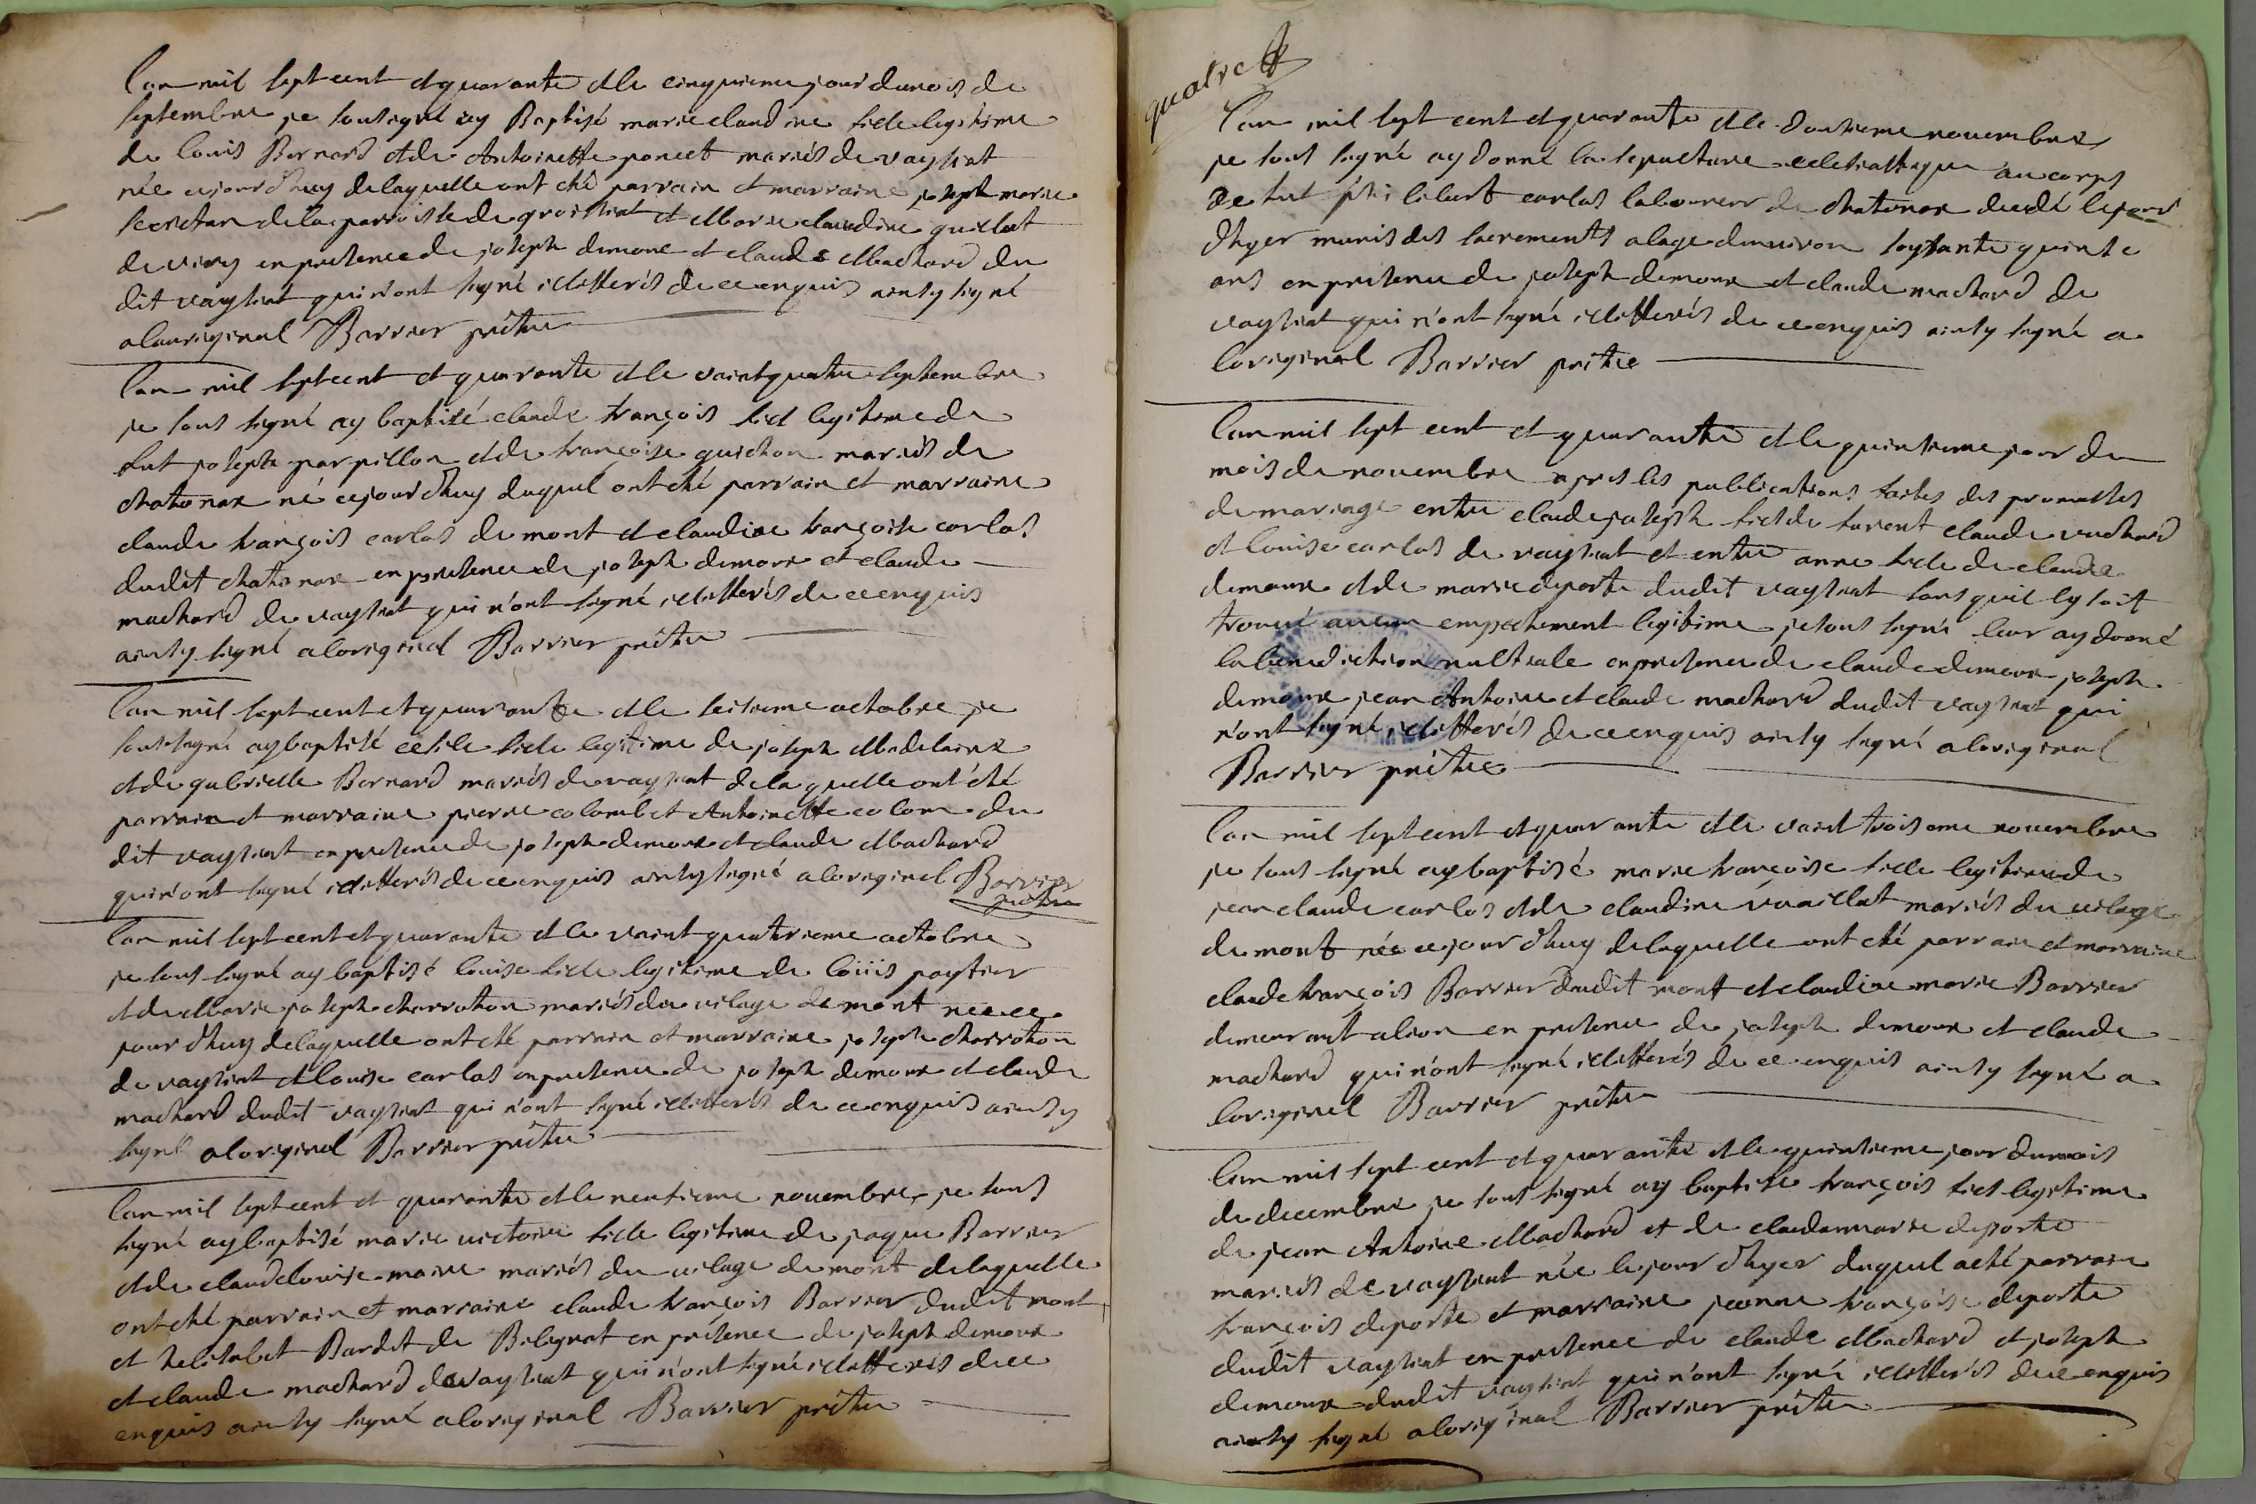 lan mil sept cent et quarante et le cinquieme jour du mois de
septembre je soussigné ay Baptisé marie claudine fille legitime
de louis Bernard et de Antoinette poncet mariés de vaysiat
née cejourdhuy de laquelle ont eté parrain et marraine joseph marie
secretan de la parroisse de groissiat et Marie claudine guillot
de viry en presence de joseph demoux et claude Machard du
dit vaysiat qui n'ont signé illetterés de ce enquis ainsy signé
a lauriginal Barrier prêtre
lan mil sept cent et quarante et le vaint quatre septembre
je sous signé ay baptisé claude françois fiel legitime de
fut joseph parpillon et de françoise guichon mariés de
chatonax né cejourdhuy duquel ont eté parrain et marraine
claude françois carlas de mont et claudine françoise carlas
dudit chatonax en presence de joseph demoux et claude
machard de vaysiat qui n'ont signé illetterés de ce enquis
ainsy signé a loriginal Barrier prêtre
lan mil sept cent et quarante et le seisieme octobre je
soussigné ay baptisé cesile fielle legitime de joseph Madelaine
et de gabrielle Bernard mariés de vaysiat de laquelle ont eté
parrain et marraine pierre colomb et Antoinette colom du
dit vaysiat en presence de joseph demoux et claude Machard
qui n'ont signé illetterés de ce enquis ainsy signé a loriginel Barrier
prêtre
lan mil sept cent et quarante et le vaint quatrieme octobre
je sous signé ay baptisé louise fielle legitime de loüis paytier
et de Marie joseph charroton mariés du vilage de mont née ce
jourdhuy de laquelle ont eté parrain et marraine joseph charroton
de vaysiat et louise carlas en presence de joseph demoux et claude
machard dudit vaysiat qui n'ont signé illetterés de ce enquis ainsy
signé a loriginel Barrier prêtre
lan mil sept cent et quarante et le neufieme nouembre je sous
signé ay baptisé marie victoire fielle legitime de jaque Barrier
et de claud louise maire mariés du vilage de mont de laquelle
ont eté parrain et marraine claude françois Barrier dudit mont
et helisabet Bardet de Belignat en presence de joseph demoux
et claude machard de vaysiat qui n'ont signé illetterés de ce
enquis ainsy signé a loriginal Barrier prêtre
quatre
lan mil sept cent et quarante et le dousieme nouembre
je sous signé ay donné la sepulture eclesiastique au corps
de fut carlas laboureur de chatonax decedé le jour
dhyer munis des sacrements a lage denuiron soysante quinse
ans en presence de joseph demoux et claude machard de
vaysiat qui n'ont signé illetterés de ce enquis ainsy signé a
loriginal Barrier prêtre
lan mil sept cent et quarante et le quinsieme jour du
mois de nouembre apres les publications faites des promesses
de mariage entre claude joseph fiel de furent claude machard
et louise carlas de vaysiat et entre anne fielle de claude
demoux et de marie deporte dudit vaysiat sans quil sy soit
trouué aucun empechement legitime je sous signé leur ay donné
la benediction nuptiale en presence de claude demoux joseph
demoux jean Antoine et claude machard dudit vaysiat qui
n'ont signé illetterés de ce enquis ainsy signé a loriginal
Barrier prêtre
lan mil sept cent et quarante et le vaint troisieme nouembre
je sous signé ay baptisé marie françoise fielle legitime de
jean claude carlas et de claudine vuaillat mariés du vilage
de mont née cejourdhuy de laquelle ont eté parrain et marraine
claude françois Barrier dudit mont et claudine marie Barrier
demeurant a lion en presence de joseph demoux et claude
machard qui n'ont signé illetterés de ce enquis ainsy signé a
loriginel Barrier prêtre
lan mil sept cent et quarante et le quinsieme jour du mois
de decembre je sous signé ay baptisé françois fiel legitime
de jean Antoine Machard et de claudanmarie deporte
mariés de vaysiat née le jour dhyer duquel a eté parrain
françois deporte et marraine jeanne françoise deporte
dudit vaysiat en presence de claude Machard et joseph
demoux dudit vaysiat qui n'ont signé illetterés de ce enquis
ainsy signé a loriginal Barrier prêtre